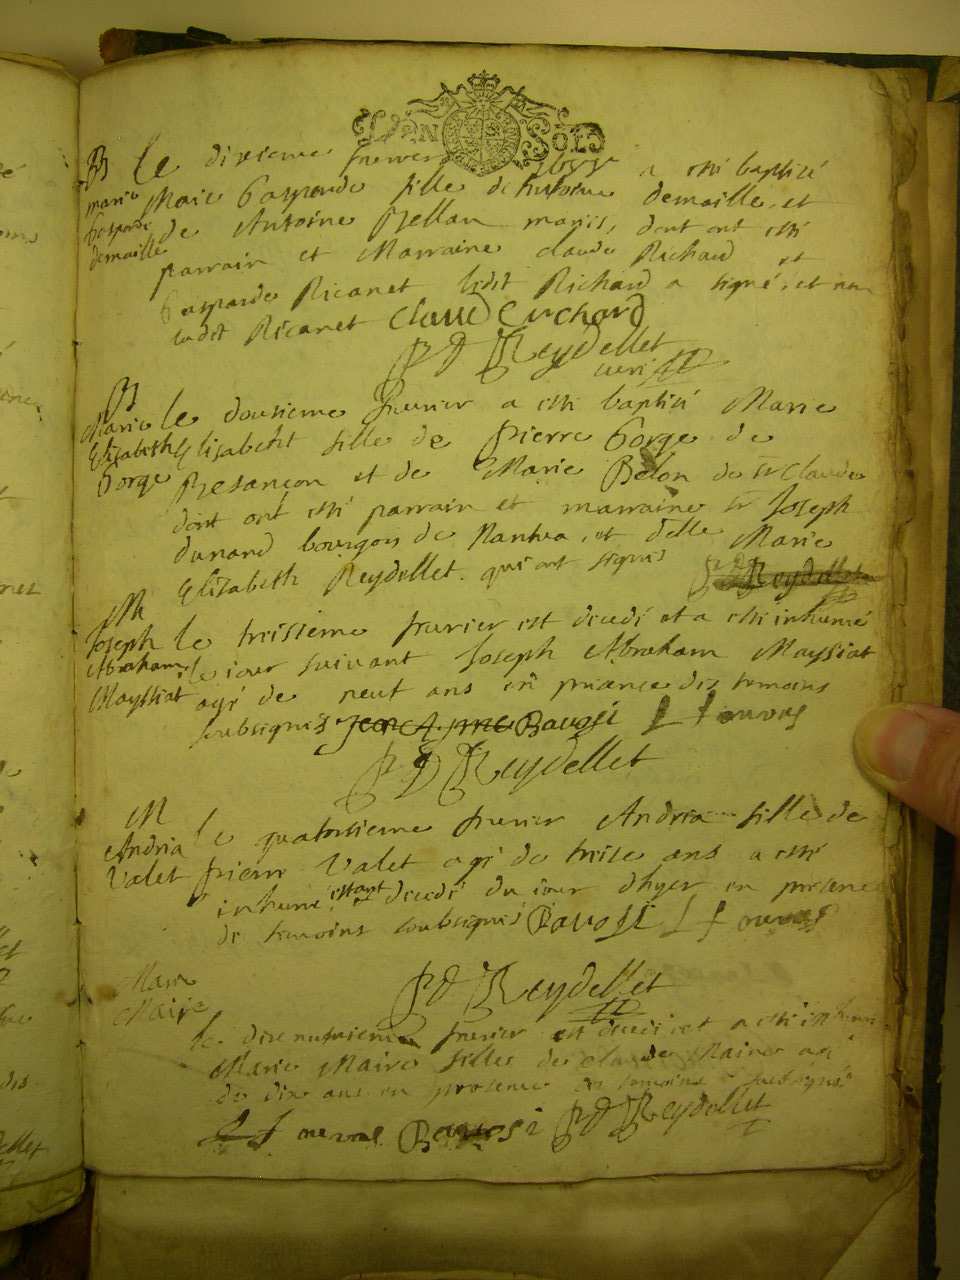 B
le dixieme fevrier a esté baptisé
marie Marie Gasparde fille de demaille, et
Gasparde de Antoine Bellan mariés, dont ont esté
demaille parrain et Marraine claude Richard et
Gasparde Ricanet ledit Richard a signé, et non
ladit Ricanet Claude Richard
Reydellet
curé
B
Marie le dousieme fevrier a esté baptisé Marie
Elisabeth Elisabeht fille de Pierre Gorge de
Gorge Besançon et de Marie Belon de st Claude
dont ont esté parrain et marraine sr Joseph
dunand bourgois de Nantua, et delle Marie
Elizabeth Reydellet. qui ont signés
Reydellet
M
Joseph le treisieme fevrier est decedé et a esté inhumé
Abraham le jour suivant Joseph Abraham Mayssiat
Mayssiat agé de neuf ans en presence des temoins
soubsignés Bavosi
Reydellet
M
Andria le quatorsieme fevrier Andria fille de
Valet pierre Valet agé de treise ans a esté
inhumé estant decedé du iour dhyer en presence
de temoins soubsignés Bavosi
Reydellet
Marie
Maire
le fevrier est decedé et a esté inhumé
Marie Maire filles de claude Maire agé
de dix ans en presence des temoins soubsignés
Bavosi Reydellet